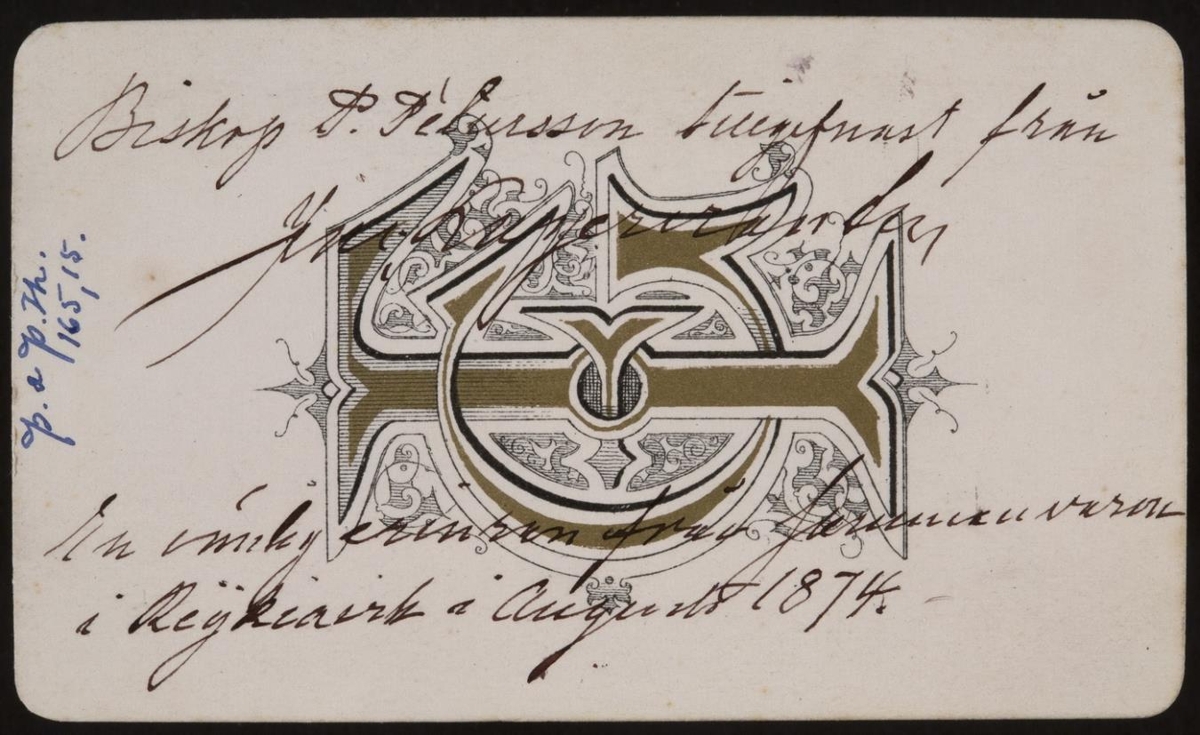 Biskop P. Pétursson tillegnast från
En vänlig erinran från sammanvaron
i Reÿkiavik i Augusti 1874.
p. a p. Th.
165,15.